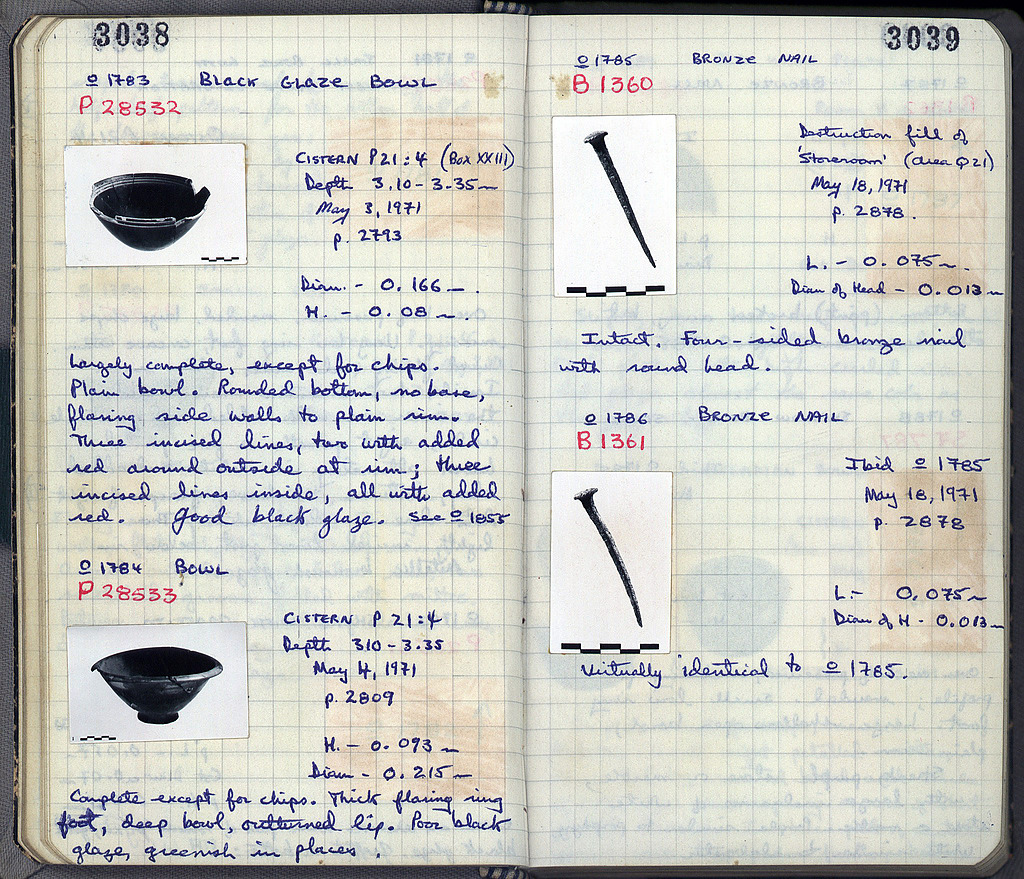 3038
o 1783 BLACK GLAZE BOWL
P 28532
CISTERN P21:4 (Box XXIII)
Depth 3.10 - 3.35 m
May 3, 1971
p. 2793
Diam. - 0.166 m.
H. - 0.08 m.
Largely complete, except for chips.
Plain bowl. Rounded bottom, no base,
flaring side walls to plain rim.
Three incised lines, two with added
red around outside at rim; three
incised lines inside, all with added
red. Good black glaze. see o 1855
o 1784 BOWL
P 28533
CISTERN P 21:4
Depth 310 - 3.35
May 4, 1971
p. 2809
H. - 0.093 m
Diam - 0.215 m
Complete except for chips. Thick flaring ring
foot, deep bowl, outturned lip. Poor black
glaze, greenish in places.
3039
o 1785 BRONZE NAIL
B 1360
Destruction fill of
'Storeroom' (area Q21)
May 18, 1971
p. 2878.
L. - 0.075 m.
Diam of Head - 0.013 m
Intact. Four-sided bronze nail
with round head.
o 1786 BRONZE NAIL
B 1361
Ibid o 1785
May 18, 1971
p. 2878
L - 0.075 m
Diam of H - 0.013 m
Virtually identical to o 1785.